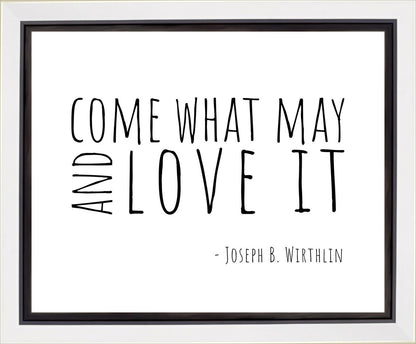 COME WHAT MAY
AND LOVE IT
- JOSEPH B. WIRTHLIN